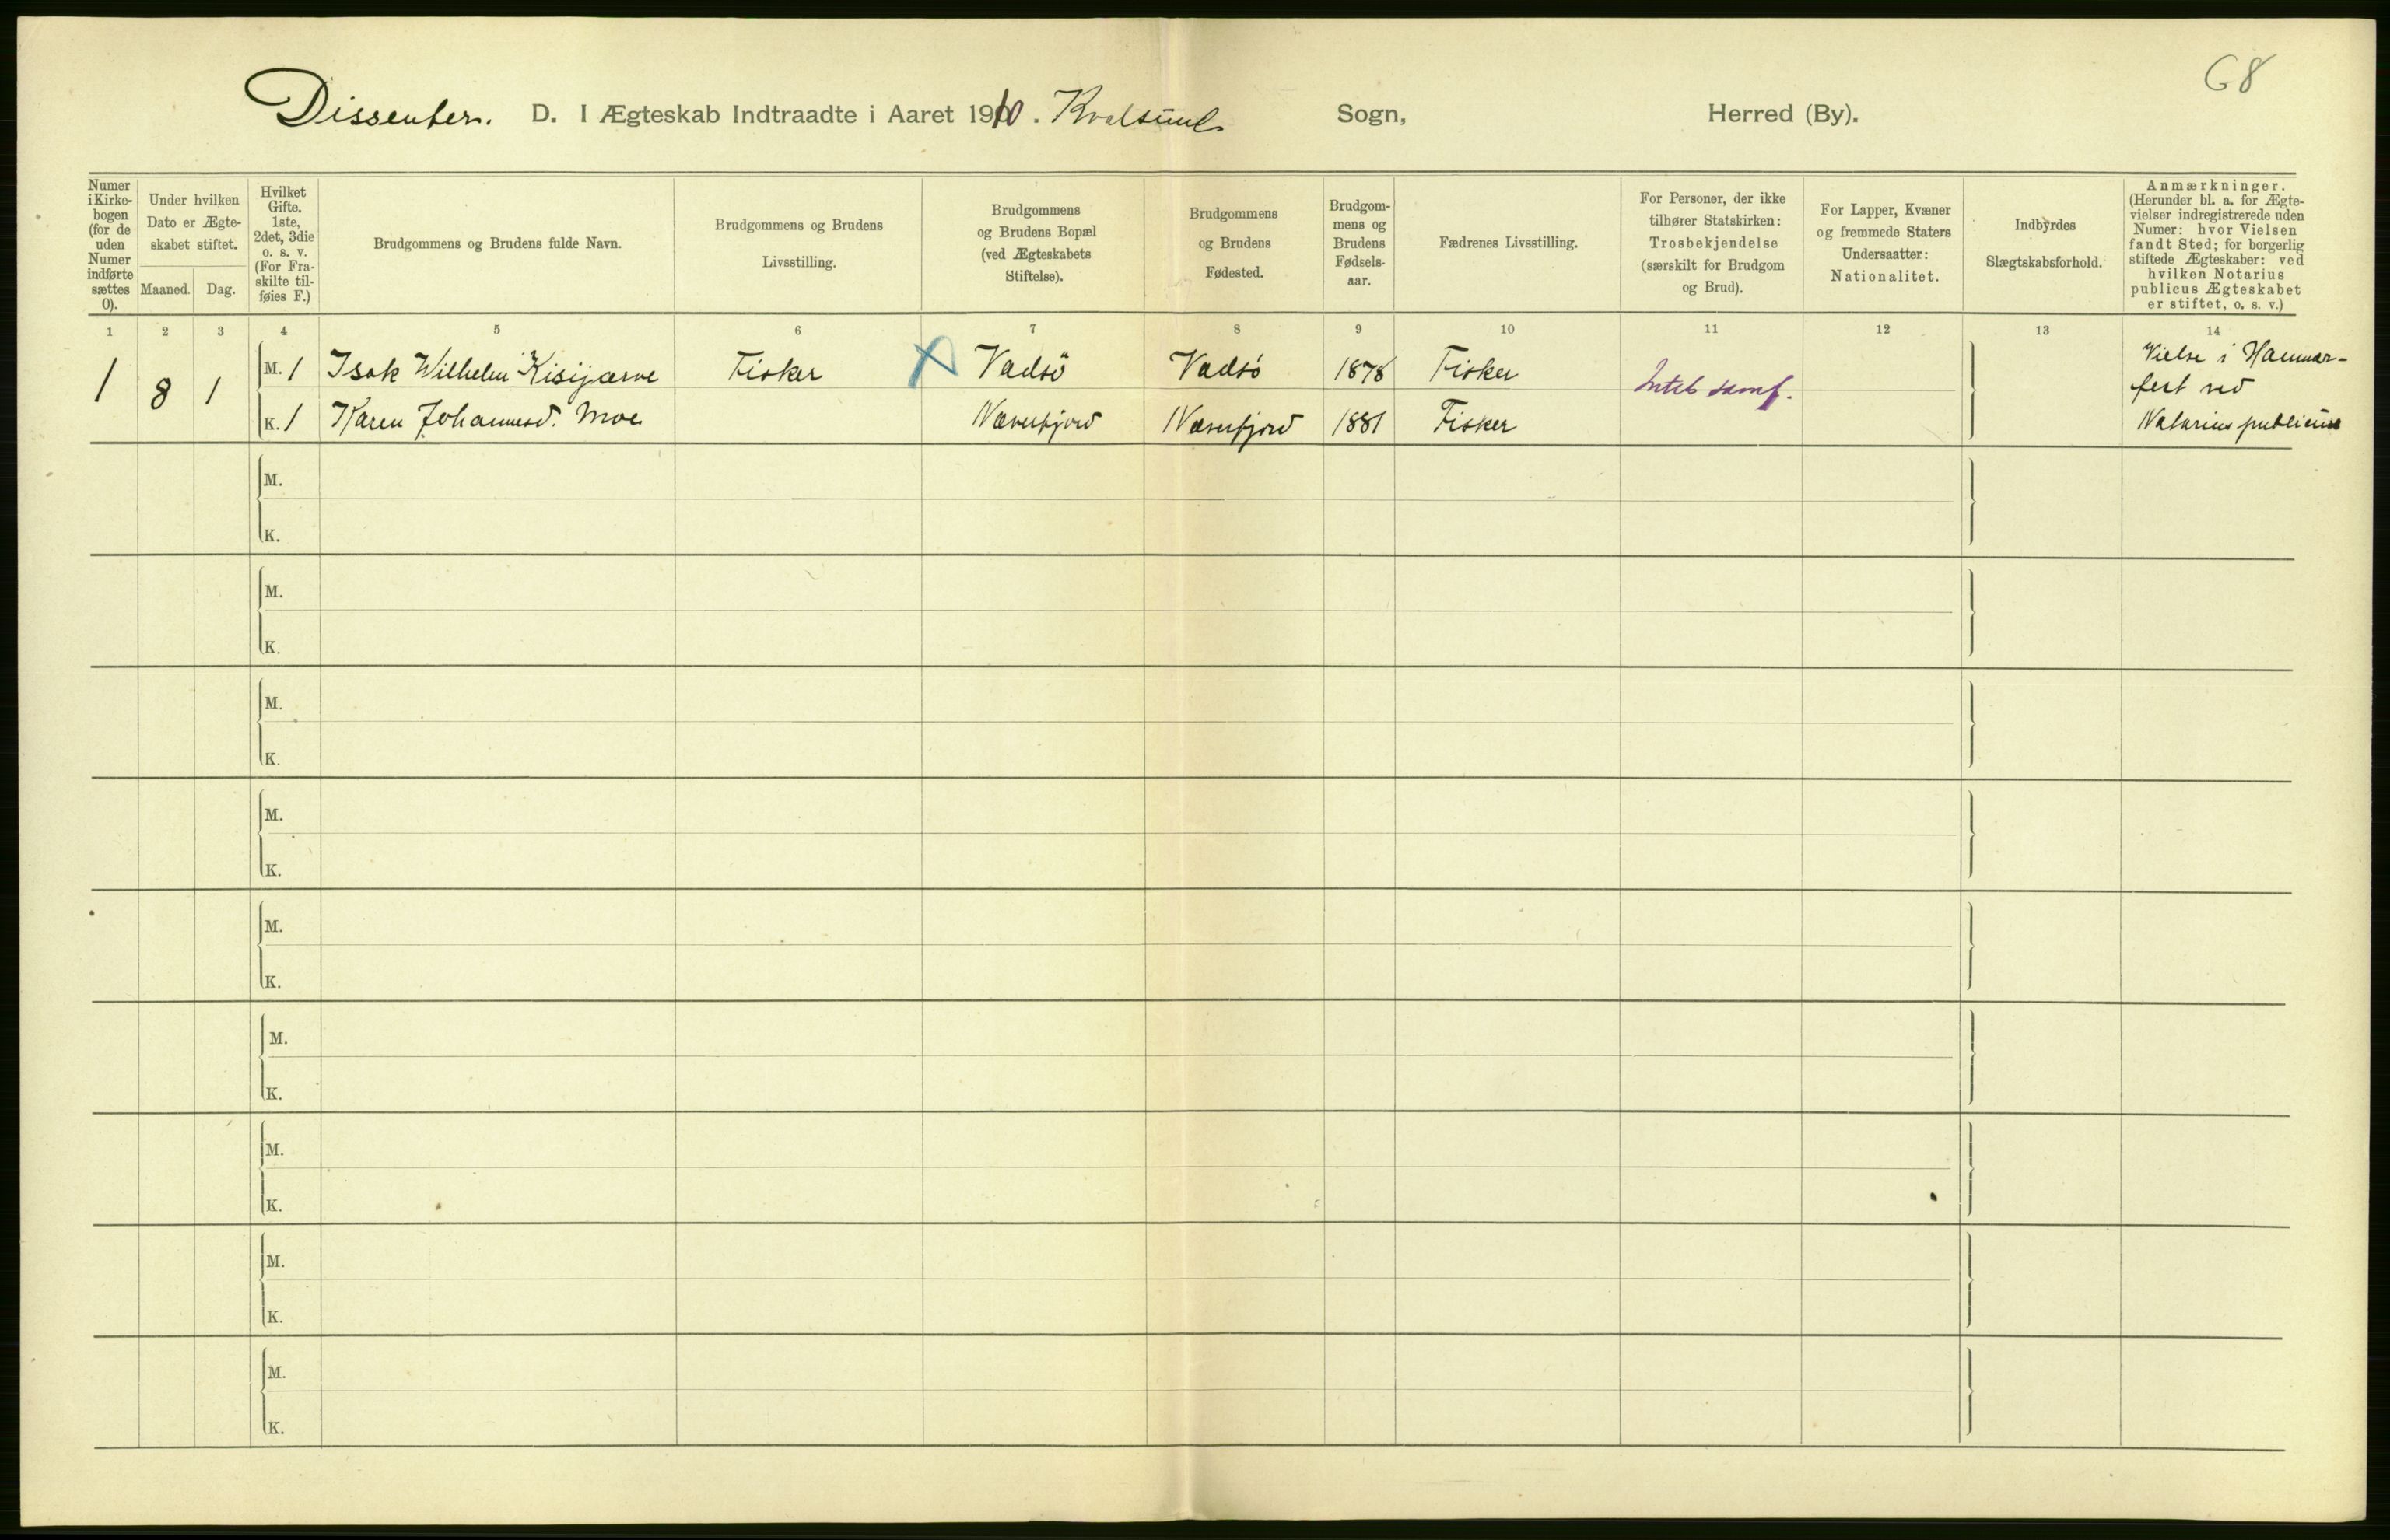 68
Dissenter. D. I Ægteskab Indtraadte i Aaret 1910. Kvalsund Sogn, Herred (By).
Numer i Kirkebogen (for de uden Numer indførte sættes 0).
Under hvilken Dato er Ægteskabet stiftet.
Maaned. Dag.
Hvilket Gifte. 1ste, 2det, 3die o. s. v. (For Fraskilte tilføies F.)
Brudgommens og Brudens fulde Navn.
Brudgommens og Brudens Livsstilling.
Brudgommens og Brudens Bopæl (ved Ægteskabets Stiftelse).
Brudgommens og Brudens Fødested.
Brudgommens og Brudens Fødselsaar.
Fædrenes Livsstilling.
For Personer, der ikke tilhører Statskirken: Trosbekjendelse (særskilt for Brudgom og Brud).
For Lapper, Kvæner og fremmede Staters Undersaatter: Nationalitet.
Indbyrdes Slægtskabsforhold.
Anmærkninger. (Herunder bl. a. for Ægtevielser indregistrerede uden Numer: hvor Vielsen fandt Sted; for borgerlig stiftede Ægteskaber: ved hvilken Notarius publicus Ægteskabet er stiftet, o. s. v.)
1 2 3 4 5 6 7 8 9 10 11 12 13 14
1 8 1 M. 1 Isak Wilhelm Kisijærve Fisker Vadsö Vadsö 1878 Fisker Intet samf. Vielse i Hammerfest ved
K. 1 Karen Johannesd. Moe Næverfjord Næverfjord 1881 Fisker Notarius publicus
M.
K.
M.
K.
M.
K.
M.
K.
M.
K.
M.
K.
M.
K.
M.
K.
M.
K.